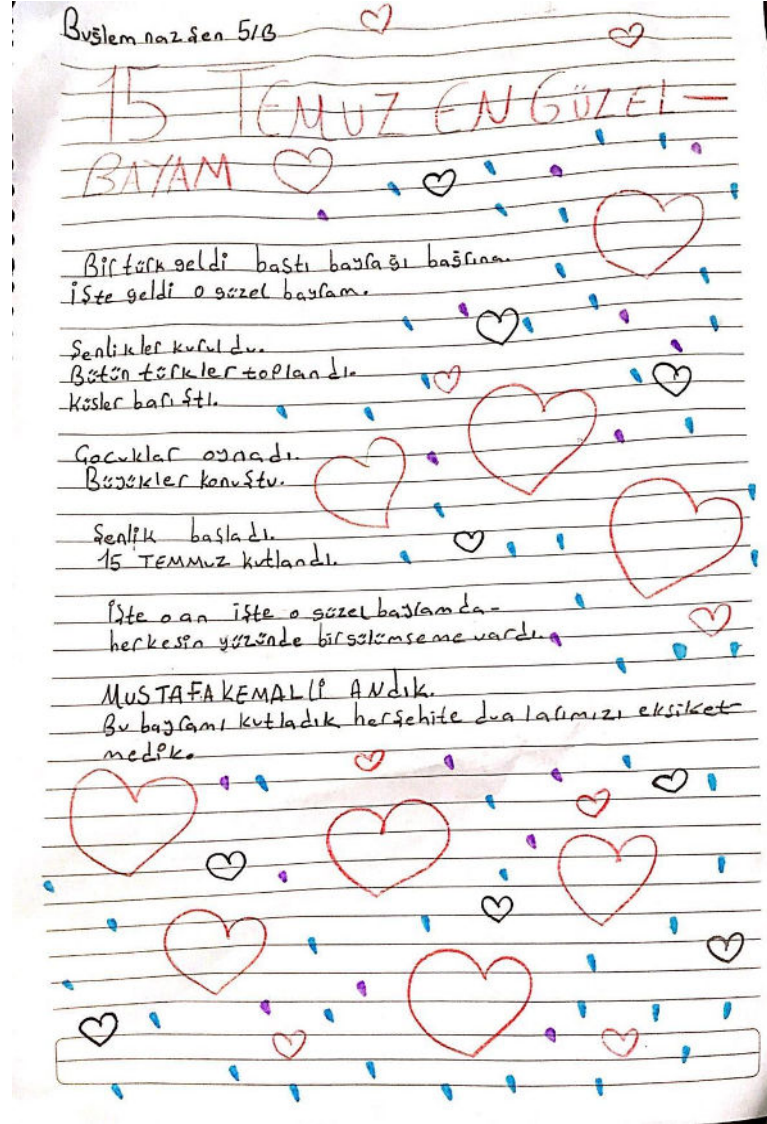 Buğlem naz Şen 5/B
15 TEMUZ EN GÜZEL-
BAYAM
Bir türk geldi bastı bayrağı bağrına.
işte geldi o güzel bayram.
Şenlikler kuruldu.
Bütün türkler toplandı.
Küsler barıştı.
Çocuklar oynadı.
Büyükler konuştu.
Şenlik başladı.
15 TEMMUZ kutlandı.
İşte o an işte o güzel bayramda-
herkesin yüzünde bir gülümseme vardı.
MUSTAFA KEMALLİ ANdık.
Bu bayramı kutladık herşehite dualarımızı eksiket
medik.